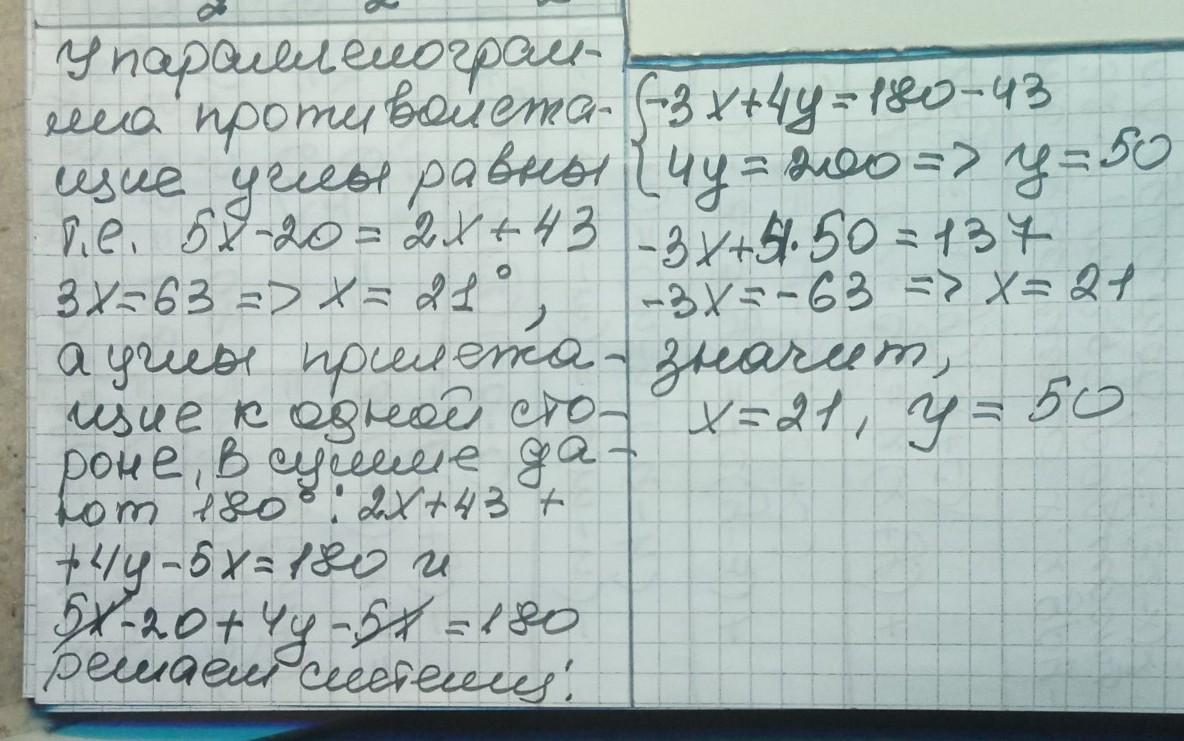 У параллелограм-
ма противолежа-
щие углы равны
т.е. 5x-20 = 2x+43
3x=63 => x= 21°,
а углы прилежа-
щие к одной сто-
роне, в сумме да-
ют 180°: 2x+43 +
+4y-5x=180 и
5x-20+4y-5x=180
решаем систему:
{-3x+4y=180-43
4y=200=> y=50
-3x+4·50=137
-3x=-63 => x=21
значит,
x=21, y=50